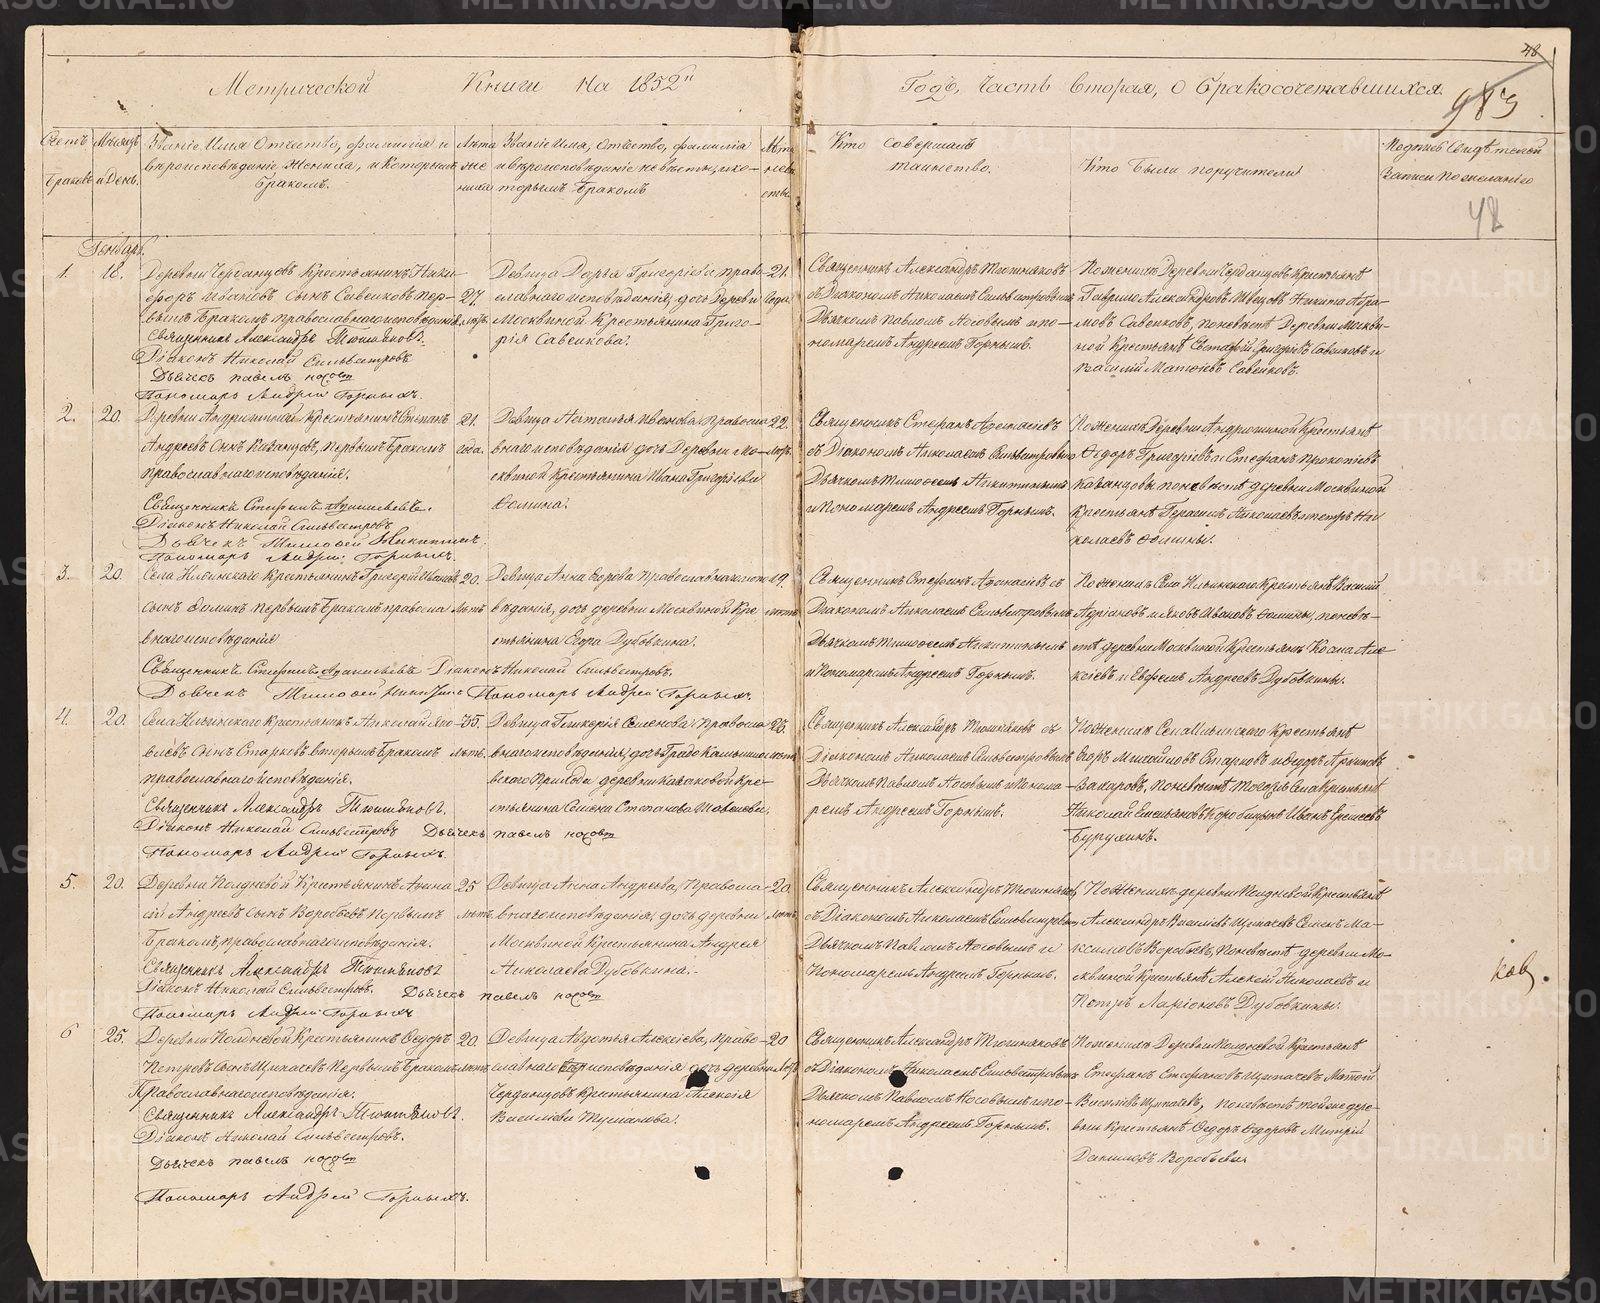 48
983
48
Метрической Книги на 1852й Годъ, Часть Вторая, о Бракосочетавшихся.
Счетъ Браковъ
Мѣсяцъ и День.
Званіе Имя Отчество, фамилія и
вѣроисповѣданіе Жениха, и Которымъ
бракомъ.
Лѣта же ниха
Званіе Имя, Отчество, фамилія
и вѣроисповѣданіе невѣсты, и ко-
торымъ бракомъ
Лѣта невѣ сты.
Кто совершалъ
таинство.
Кто были поручители
Подпись Свидѣтелей
Записи по желанію
Генварь.
1. 18.
Деревни Черданцовъ Крестьянинъ Ники-
форъ Ивановъ сынъ Савенковъ пер-
вымъ бракомъ православнаго исповѣданія.
27 лѣтъ
Священникъ Александръ Тюшняковъ.
Діаконъ Николай Сильвестровъ
Дьячекъ Павелъ Носовъ
Пономарь Андрей Горныхъ.
Девица Дарья Григорьева право-
славнаго исповѣданія, дочь Деревни
Москвиной Крестьянина Григо-
рія Савенкова.
21. года
Священникъ Александръ Тюшняковъ
съ Діакономъ Николаемъ Сильвестровымъ
Дьячкомъ Павломъ Носовымъ и по-
номаремъ Андреемъ Горнымъ.
По женихѣ Деревни Черданцовъ Крестьянѣ
Гаврило Александровъ Швецовъ Никита Абра-
мовъ Савенковъ, по невѣстѣ Деревни Москви-
ной Крестьянѣ Евстафій Григорьевъ Савенковъ и
Василій Матвѣевъ Савенковъ.
2. 20.
Деревни Андрюшиной Крестьянинъ Степанъ
Андреевъ сынъ Казанцовъ, первымъ бракомъ
православнаго исповѣданія.
21. года.
Священникъ Стефанъ Аѳанасьевъ.
Діаконъ Николай Сильвестровъ
Дьячекъ Тимоѳей Никитинъ
Пономарь Андрей Горныхъ.
Девица Наталья Иванова Правосла-
внаго исповѣданія дочь Деревни Мо-
сквиной Крестьянина Ивана Григорьева
Ѳомина.
22. лѣтъ
Священникъ Стефанъ Аѳанасьевъ
съ Діакономъ Николаемъ Сильвестровымъ
Дьячкомъ Тимоѳеемъ Никитинымъ
и Пономаремъ Андреемъ Горнымъ.
По женихѣ Деревни Андрюшиной Крестьянѣ
Ѳедоръ Григорьевъ и Стефанъ Прокопьевъ
Казанцовы, по невѣстѣ деревни Москвиной
Крестьянѣ Герасимъ Николаевъ и Петръ Ни-
колаевъ Ѳомины.
3. 20.
Села Ильинскаго Крестьянинъ Григорій Ивановъ
сынъ Ѳоминъ первымъ бракомъ правосла-
внаго исповѣданія
20. лѣтъ
Священникъ Стефанъ Аѳанасьевъ Діаконъ Николай Сильвестровъ.
Дьячекъ Тимоѳей Никитинъ Пономарь Андрей Горныхъ.
Девица Анна Егорова Православнаго испо-
вѣданія, дочь деревни Москвиной Кре-
стьянина Егора Дубовкина.
19. лѣтъ
Священникъ Стефанъ Аѳанасьевъ съ
Діакономъ Николаемъ Сильвестровымъ
Дьячкомъ Тимоѳеемъ Никитинымъ
и Пономаремъ Андреемъ Горнымъ.
По женихѣ Села Ильинскаго Крестьянѣ Василій
Андріановъ и Яковъ Ивановъ Ѳомины, по невѣ-
стѣ деревни Москвиной Крестьянѣ Козма Але-
ксіевъ и Ефремъ Андреевъ Дубовкины.
4. 20.
Села Ильинскаго Крестьянинъ Николай Яко-
влевъ сынъ Старковъ вторымъ бракомъ
православнаго исповѣданія.
35. лѣтъ.
Священникъ Александръ Тюшняковъ.
Діаконъ Николай Сильвестровъ Дьячекъ Павелъ Носовъ
Пономарь Андрей Горныхъ.
Девица Гликерія Семенова, Правосла-
внаго исповѣданія, дочь Градо Камышло-
вскаго Прихода деревни Казаковой Кре-
стьянина Семена Степанова
25. лѣтъ
Священникъ Александръ Тюшняковъ съ
Діакономъ Николаемъ Сильвестровымъ
Дьячкомъ Павломъ Носовымъ и Понома-
ремъ Андреемъ Горнымъ.
По женихѣ Села Ильинскаго Крестьянѣ
Егоръ Михайловъ Старковъ и Ѳедоръ
Захаровъ, по невѣстѣ тогожъ Села Крестьянѣ
Николай Емельяновъ Коробицынъ Иванъ Еремеевъ
Бурухинъ.
5. 20.
Деревни Полдневой Крестьянинъ Афана-
сій Андреевъ сынъ Воробьевъ первымъ
бракомъ, православнаго исповѣданія.
25 лѣтъ
Священникъ Александръ Тюшняковъ
Діаконъ Николай Сильвестровъ. Дьячекъ Павелъ Носовъ
Пономарь Андрей Горныхъ
Девица Анна Андреева, Правосла-
внаго исповѣданія, дочь деревни
Москвиной Крестьянина Андрея
Николаева Дубовкина.
20. лѣтъ
Священникъ Александръ Тюшняковъ,
съ Діакономъ Николаемъ Сильвестровымъ
Дьячкомъ Павломъ Носовымъ и
Пономаремъ Андреемъ Горнымъ.
По женихѣ деревни Полдневой Крестьянѣ
Александръ Васильевъ Щипачевъ Семенъ Ма-
ксимовъ Воробьевъ, по невѣстѣ деревни Мо-
сквиной Крестьянѣ, Алексій Николаевъ и
Петръ Ларіоновъ Дубовкины.
6 25.
Деревни Полдневой Крестьянинъ Ѳедоръ
Петровъ сынъ Щипачевъ Первымъ бракомъ
Православнаго исповѣданія.
20. лѣтъ
Священникъ Александръ Тюшняковъ.
Діаконъ Николай Сильвестровъ.
Дьячекъ Павелъ Носовъ
Пономарь Андрей Горныхъ.
Девица Авдотья Алексіева, право-
славнаго исповѣданія дочь деревни
Черданцовъ Крестьянина Алексія
Васильева Туманова.
20 лѣтъ
Священникъ Александръ Тюшняковъ
съ Діакономъ Николаемъ Сильвестровымъ
Дьячкомъ Павломъ Носовымъ и по-
номаремъ Андреемъ Горнымъ.
По женихѣ Деревни Полдневой Крестьянѣ
Стефанъ Стефановъ Щипачевъ Матвей
Васильевъ Щипачевъ, по невѣстѣ той же дере-
вни Крестьянѣ Ѳедоръ Ѳедоровъ Митрій
Даниловъ Воробьевы
METRIKI.GASO-URAL.RU